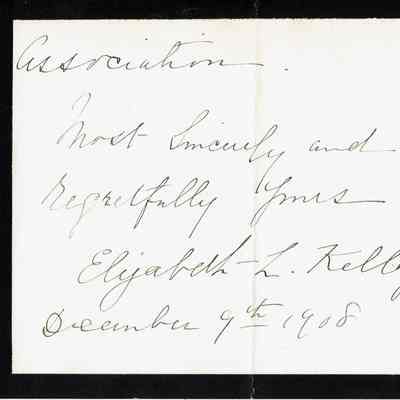 Association.
Most Sincerely and
Regretfully Yours
Elizabeth L. Kelley
December 9th 1908